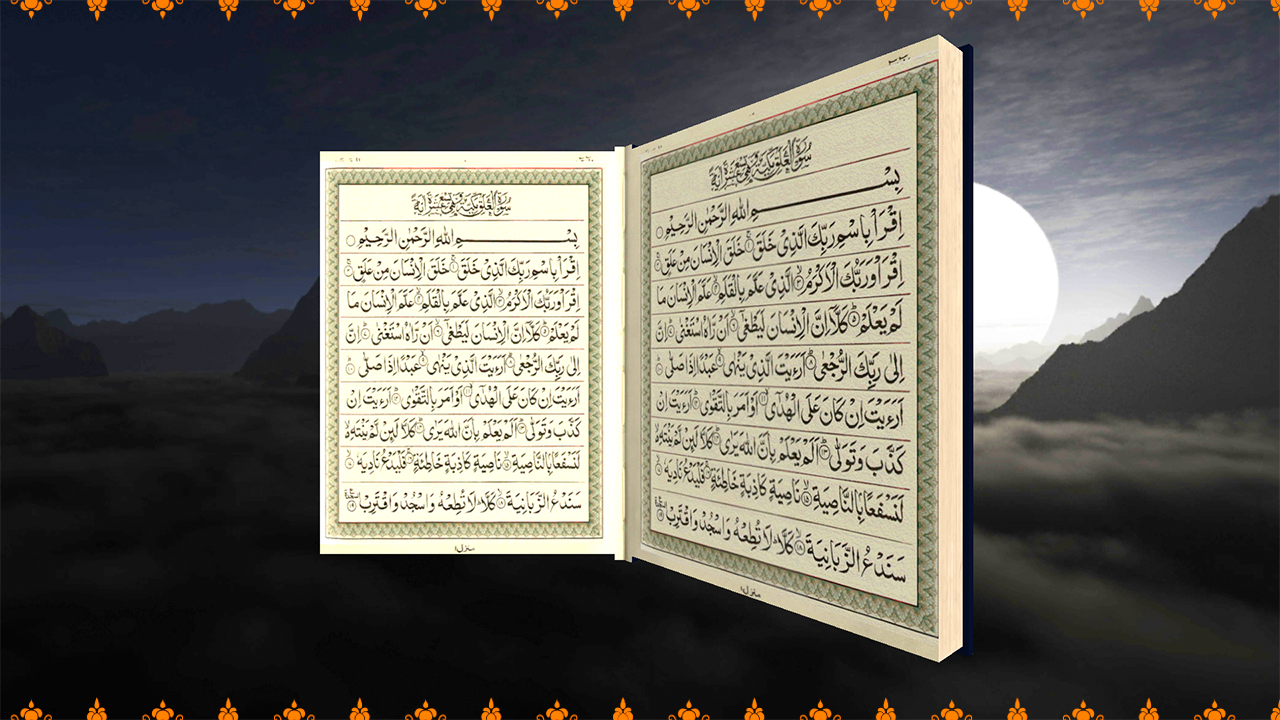 سُوْرَةُ الْعَلَقِ مَكِّيَّةٌ وَّهِيَ تِسْعَ عَشْرَةَ اٰيَةً
بِسْمِ اللهِ الرَّحْمٰنِ الرَّحِيْمِ
اِقْرَاْ بِاسْمِ رَبِّكَ الَّذِيْ خَلَقَ ۚ﴿۱﴾ خَلَقَ الْاِنْسَانَ مِنْ عَلَقٍ ۚ﴿۲﴾
اِقْرَاْ وَرَبُّكَ الْاَكْرَمُ ۙ﴿۳﴾ الَّذِيْ عَلَّمَ بِالْقَلَمِ ۙ﴿۴﴾ عَلَّمَ الْاِنْسَانَ مَا
لَمْ يَعْلَمْ ؕ﴿۵﴾ كَلَّاۤ اِنَّ الْاِنْسَانَ لَيَطْغٰۤى ۙ﴿۶﴾ اَنْ رَّاٰهُ اسْتَغْنٰى ؕ﴿۷﴾ اِنَّ
اِلٰى رَبِّكَ الرُّجْعٰى ؕ﴿۸﴾ اَرَءَيْتَ الَّذِيْ يَنْهٰى ۙ﴿۹﴾ عَبْدًا اِذَا صَلّٰى ؕ﴿۱۰﴾
اَرَءَيْتَ اِنْ كَانَ عَلَى الْهُدٰۤى ۙ﴿۱۱﴾ اَوْ اَمَرَ بِالتَّقْوٰى ؕ﴿۱۲﴾ اَرَءَيْتَ اِنْ
كَذَّبَ وَتَوَلّٰى ؕ﴿۱۳﴾ اَلَمْ يَعْلَمْ بِاَنَّ اللهَ يَرٰى ؕ﴿۱۴﴾ كَلَّا لَىِٕنْ لَّمْ يَنْتَهِ ۙ
لَنَسْفَعًۢا بِالنَّاصِيَةِ ۙ﴿۱۵﴾ نَاصِيَةٍ كَاذِبَةٍ خَاطِئَةٍ ۚ﴿۱۶﴾ فَلْيَدْعُ نَادِيَهٗ ۙ﴿۱۷﴾
سَنَدْعُ الزَّبَانِيَةَ ۙ﴿۱۸﴾ كَلَّا ؕ لَا تُطِعْهُ وَاسْجُدْ وَاقْتَرِبْ ﴿۱۹﴾
منزل
سُوْرَةُ الْعَلَقِ مَكِّيَّةٌ وَّهِيَ تِسْعَ عَشْرَةَ اٰيَةً
بِسْمِ اللهِ الرَّحْمٰنِ الرَّحِيْمِ
اِقْرَاْ بِاسْمِ رَبِّكَ الَّذِيْ خَلَقَ ۚ﴿۱﴾ خَلَقَ الْاِنْسَانَ مِنْ عَلَقٍ ۚ﴿۲﴾
اِقْرَاْ وَرَبُّكَ الْاَكْرَمُ ۙ﴿۳﴾ الَّذِيْ عَلَّمَ بِالْقَلَمِ ۙ﴿۴﴾ عَلَّمَ الْاِنْسَانَ مَا
لَمْ يَعْلَمْ ؕ﴿۵﴾ كَلَّاۤ اِنَّ الْاِنْسَانَ لَيَطْغٰۤى ۙ﴿۶﴾ اَنْ رَّاٰهُ اسْتَغْنٰى ؕ﴿۷﴾ اِنَّ
اِلٰى رَبِّكَ الرُّجْعٰى ؕ﴿۸﴾ اَرَءَيْتَ الَّذِيْ يَنْهٰى ۙ﴿۹﴾ عَبْدًا اِذَا صَلّٰى ؕ﴿۱۰﴾
اَرَءَيْتَ اِنْ كَانَ عَلَى الْهُدٰۤى ۙ﴿۱۱﴾ اَوْ اَمَرَ بِالتَّقْوٰى ؕ﴿۱۲﴾ اَرَءَيْتَ اِنْ
كَذَّبَ وَتَوَلّٰى ؕ﴿۱۳﴾ اَلَمْ يَعْلَمْ بِاَنَّ اللهَ يَرٰى ؕ﴿۱۴﴾ كَلَّا لَىِٕنْ لَّمْ يَنْتَهِ ۙ
لَنَسْفَعًۢا بِالنَّاصِيَةِ ۙ﴿۱۵﴾ نَاصِيَةٍ كَاذِبَةٍ خَاطِئَةٍ ۚ﴿۱۶﴾ فَلْيَدْعُ نَادِيَهٗ ۙ﴿۱۷﴾
سَنَدْعُ الزَّبَانِيَةَ ۙ﴿۱۸﴾ كَلَّا ؕ لَا تُطِعْهُ وَاسْجُدْ وَاقْتَرِبْ ﴿۱۹﴾
منزل